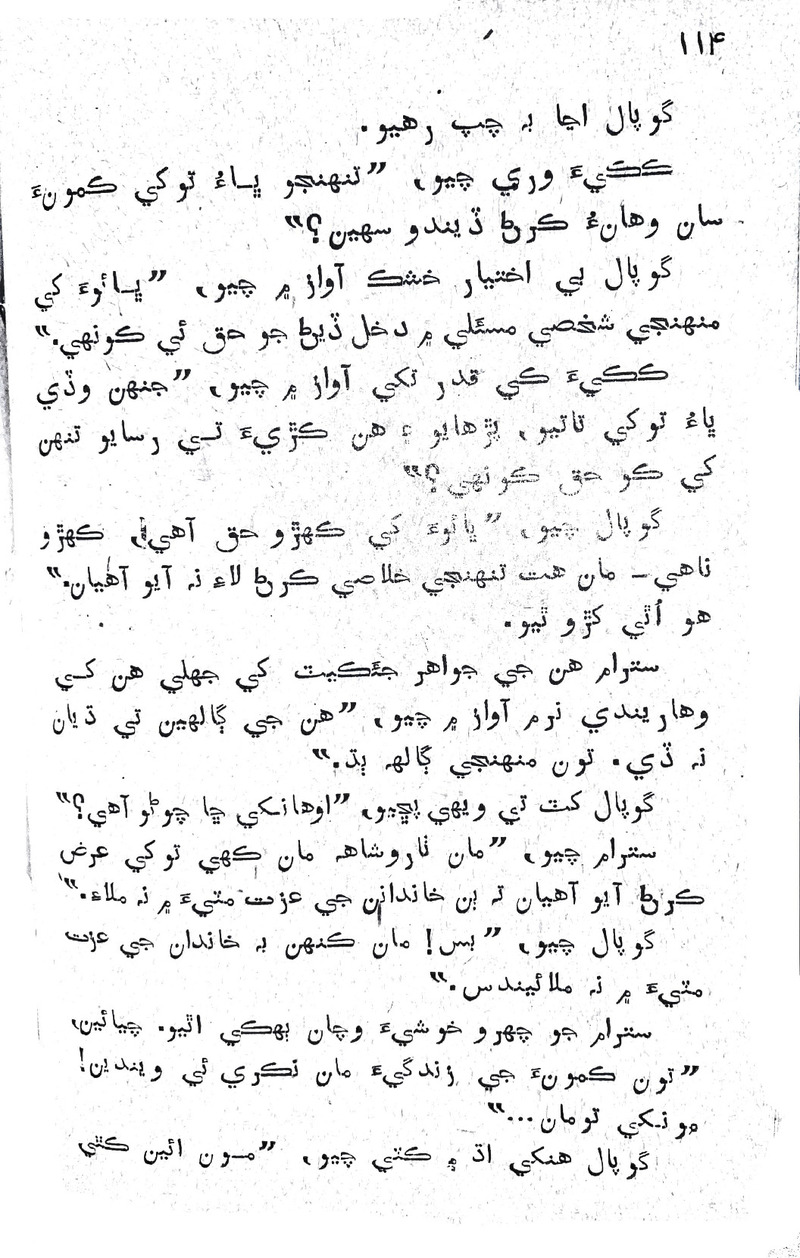 ۱۱۴
گوپال اڃا بہ چپ رهيو.
ڪڪيءَ وري چيو، ”تنهنجو ڀاءُ توکي ڪمونءَ
سان وهانءُ ڪرڻ ڏيندو سهين؟“
گوپال بي اختيار خشڪ آواز ۾ چيو، ”ڀائوءَ کي
منهنجي شخصي مسئلي ۾ دخل ڏيڻ جو حق ئي ڪونهي.“
ڪڪيءَ ڪي قدر تکي آواز ۾ چيو، ”جنهن وڏي
ڀاءُ توکي تاتيو، پڙهايو ۽ هن ڪڙيءَ تي رسايو تنهن
کي ڪو حق ڪونهي؟“
گوپال چيو، ”ڀائوءَ کي ڪهڙو حق آهي، ڪهڙو
ناهي — مان هت تنهنجي خلاصي ڪرڻ لاءِ نہ آيو آهيان.“
هو اُٿي کڙو ٿيو.
سترام هن جي جواهر جئڪيٽ کي جهلي هن کي
وهاريندي نرم آواز ۾ چيو، ”هن جي ڳالهين تي ڌيان
نہ ڏي. تون منهنجي ڳالهہ ٻڌ.“
گوپال کٽ تي ويهي پڇيو، ”اوهانکي ڇا چوڻو آهي؟“
سترام چيو، ”مان ٺاروشاهہ مان ڪهي توکي عرض
ڪرڻ آيو آهيان تہ ٻن خاندانن جي عزت مٽيءَ ۾ نہ ملاءِ.“
گوپال چيو، ”بس! مان ڪنهن بہ خاندان جي عزت
مٽيءَ ۾ نہ ملائيندس.“
سترام جو چهرو خوشيءَ وچان ٻهڪي اٿيو. چيائين،
”تون ڪمونءَ جي زندگيءَ مان نڪري ئي ويندين!
مونکي تومان...“
گوپال هنکي اڌ ۾ ڪٽي چيو، ”مون ائين ڪٿي